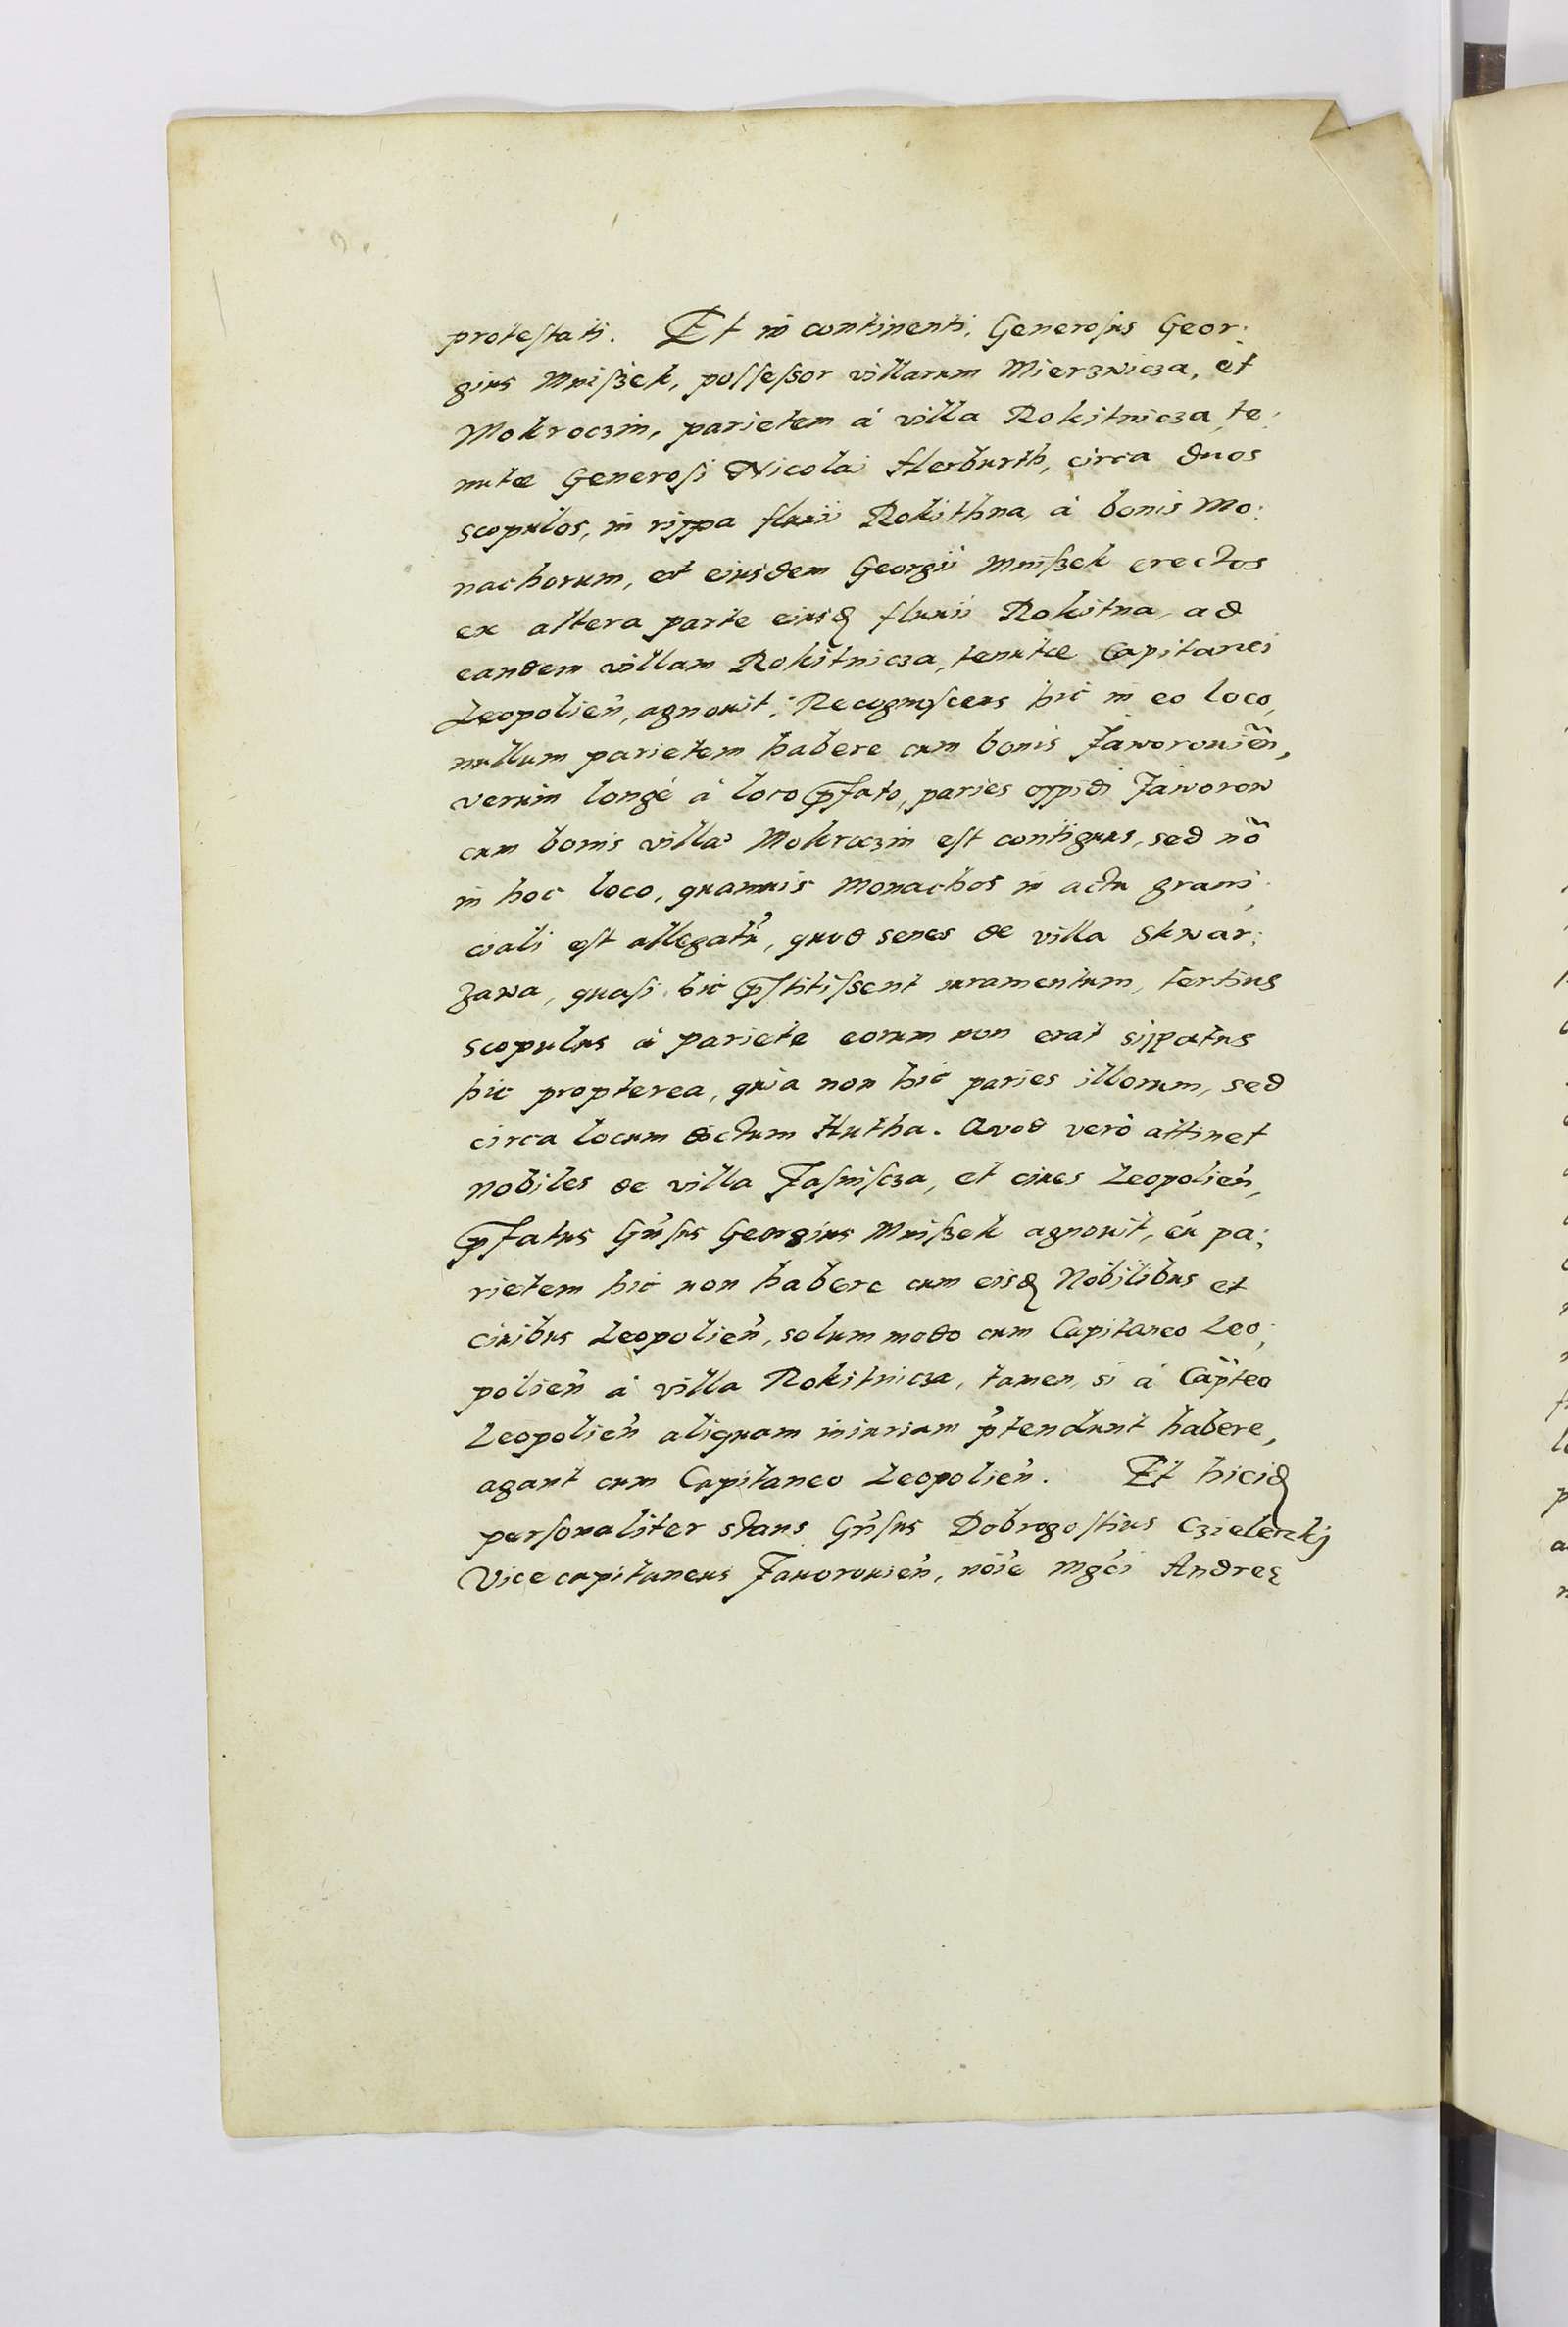 protestati. Et in continenti, Generosus Geor:
gius Mnißek, possessor villarum Mierzwicza, et
Mokroczin, parietem à villa Rokitnicza te:
nutæ Generosi Nicolai Herburth, circa duos
scopulos, in rippa fluuii Rokithna, à bonis Mo:
nachorum, et eiusdem Georgii Mnißek erectos
ex altera parte eiusꝗ fluuii Rokitna, ad
eandem villam Rokitnicza, tenutæ Capitanei
Leopolien̄, agnouit: Recognoscens hic in eo loco,
nullum parietem habere cum bonis Jaworouien̄,
verum longè à loco p̄fato, paries oppidi Jaworow
cum bonis villæ Mokroczin est contiguus, sed nō
in hoc loco, quamuis Monachos in actu grani:
ciali est allegatū, quod senes de villa Skwar:
zawa, quasi hic p̄stitissent iuramentum, tertius
scopulus à pariete eorum non erat sippatus
hic propterea, quia non hic paries illorum, sed
circa locum dictum Hutha. Quod verò attinet
Nobiles de villa Jasniscza, et ciues Leopolien̄,
p̄fatus Gn̄sus Georgius Mnißek agnouit, eū pa:
rietem hic non habere cum eisꝗ Nobilibus et
ciuibus Leopolien̄, solummodo cum Capitaneo Leo:
polien̄ à villa Rokitnicza, tamen, si à Cap̄teo
Leopolien̄ aliquam iniuriam p̄tendunt habere,
agant cum Capitaneo Leopolien̄. Et hiciꝗ
personaliter stans Gn̄sus Dobrogostius Czielenzkj
Vicecapitaneus Jaworouien̄, nōie Mgc̄i Andreę